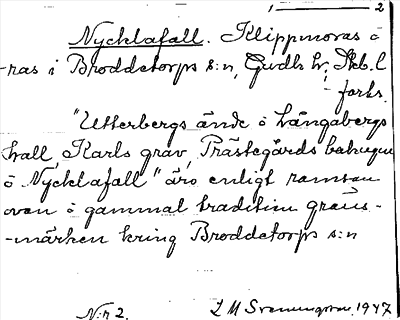 1 — 2
Nycklafall. Klippmoras ö
-ras i Broddetorps s:n, Gudh. hr, Skb. l.
forts.
"Utterbergs ände å Långabergs
hall, Karls grav, Prästegårds
å Nycklafall" äro enligt ramsan
ovan å gammal tradition gräns-
-märken kring Broddetorps s:n
N:r 2. L M Svenungsson, 1947